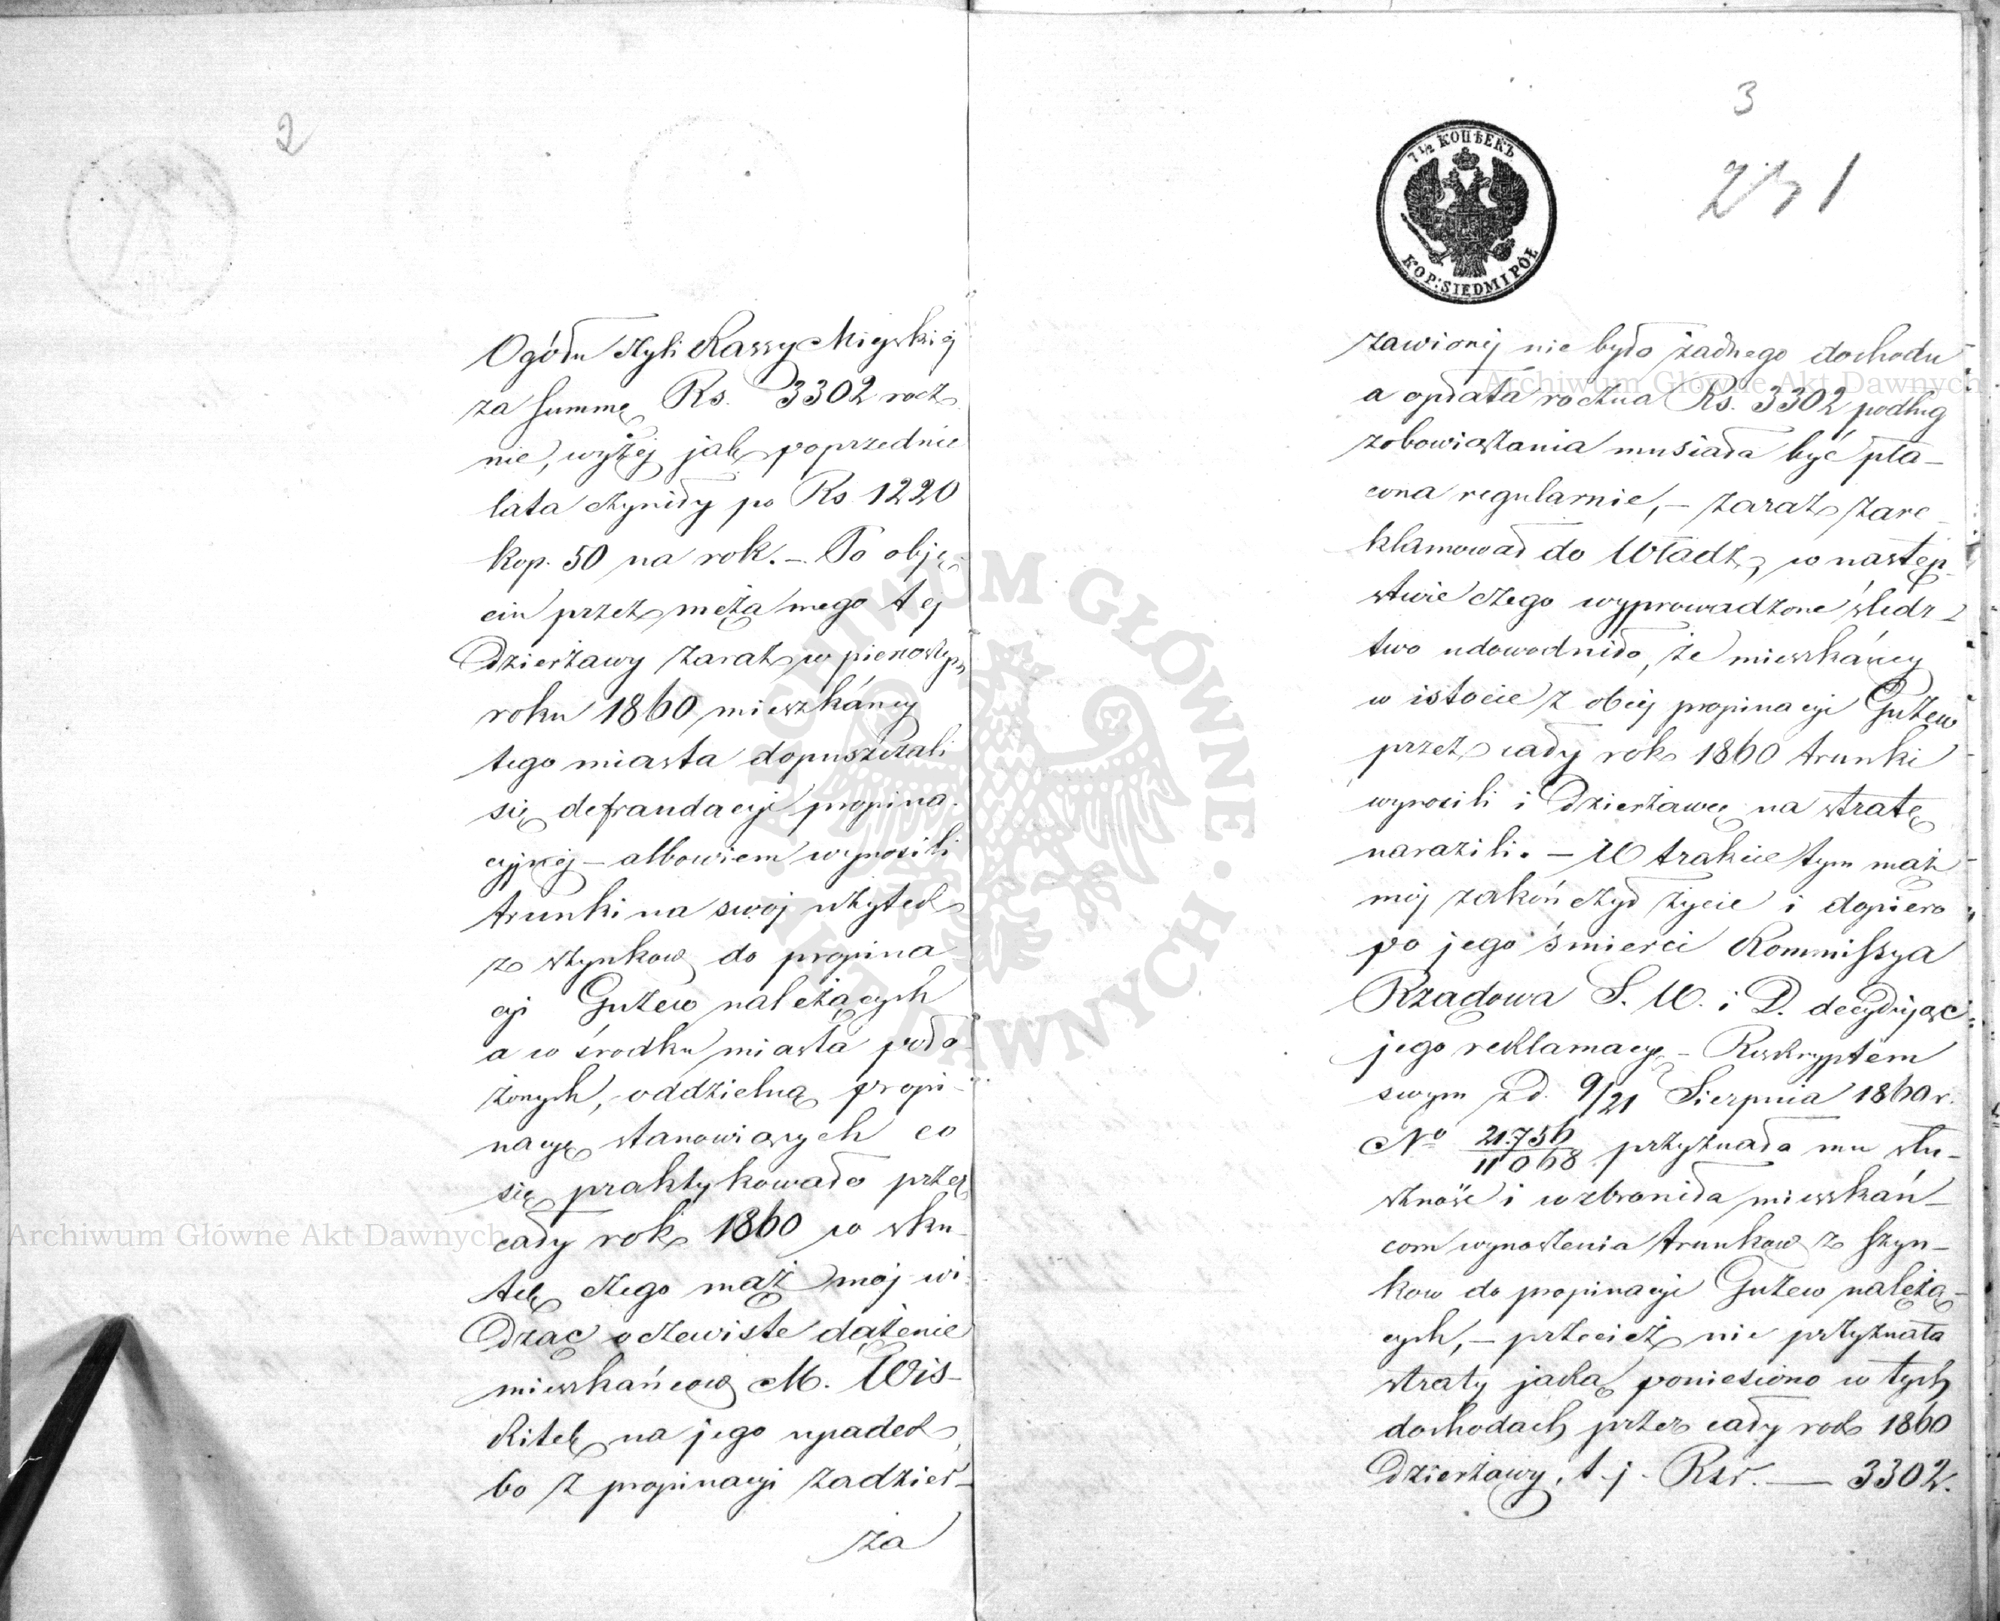 2
Ogółu czyli Kassy Mieyskiej
za summę Rs. 3302 rocz
nie, wyżej jak poprzednie
lata czyniły po Rs 1220
kop. 50 na rok. – Po obję-
ciu przez męża mego tej
Dzierżawy zaraz w pierwszym
roku 1860 mieszkańcy
tego miasta dopuszczali
się defraudacyi propina-
cyjnej – albowiem wynosili
trunki na swój użytek
z szynków do propina-
cyi Guzew należących
a w środku miasta poło-
żonych, oddzielną propi-
nacyę stanowiących co
się praktykowało przez
cały rok 1860 w sku-
tek czego mąż mój wi-
dząc oczewiste dążenie
mieszkańców M. Wis-
kitek na jego upadek,
bo z propinacyi zadzier-
ża
3
231
7 1/2 КОПѢЕКЪ
KOP: SIEDM I PÓŁ
żawionej nie było żadnego dochodu
a opłata roczna Rs. 3302 podług
zobowiązania musiała być pła-
cona regularnie, – zaraz zare-
klamował do Władz, w następ-
stwie czego wyprowadzone śledz-
two udowodniło, że mieszkańcy
w istocie z obcej propinacyi Guzew
przez cały rok 1860 trunki
wynosili i Dzierżawcę na stratę
narazili. – W trakcie tym mąż
mój zakończył życie i dopiero
po jego śmierci Kommissya
Rządowa S. W. i D. decydując
jego reklamacyę – Reskryptem
swym z d. 9/21 Sierpnia 1860 r.
No 21.756/11068 przyznała mu słu-
szność i wzbroniła mieszkań-
com wynoszenia trunków z szyn-
ków do propinacyi Guzew należą-
cych, – przecież nie przyznała
straty jaką poniesiono w tych
dochodach przez cały rok 1860
Dzierżawy, t. j. Rsr. — 3302.
Archiwum Główne Akt Dawnych
Archiwum Główne Akt Dawnych
ARCHIWUM GŁÓWNE AKT DAWNYCH